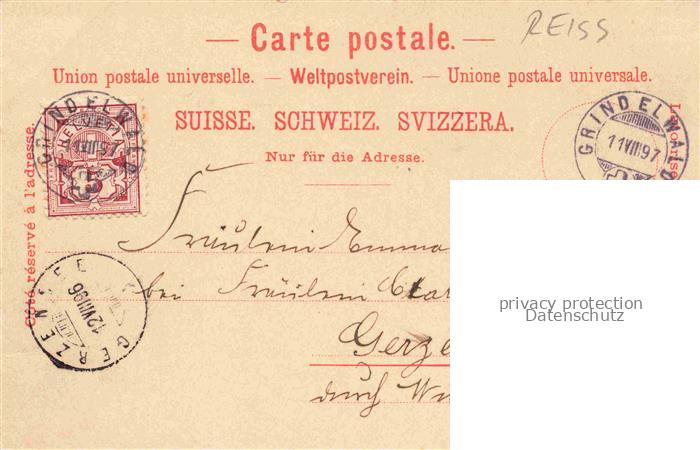 REISS
— Carte postale. —
Union postale universelle. — Weltpostverein. — Unione postale universale.
SUISSE. SCHWEIZ. SVIZZERA.
Nur für die Adresse.
Côté réservé à l'adresse.
HELVETIA
GRINDELWALD
11 VIII 97
GRINDELWALD
11 VIII 97
Fräulein Emma
bei Fräulein
Gerze
durch
GERZENSEE
12 VIII 96
privacy protection
Datenschutz